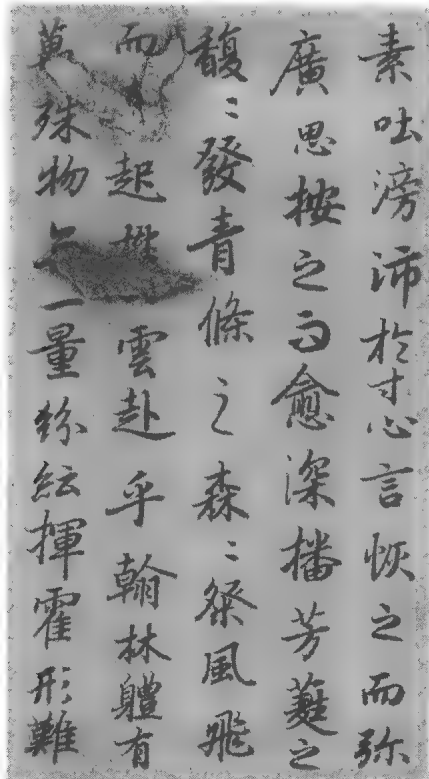 素吐滂沛於寸心言恢之而弥
廣思按之而愈深播芳蕤之
馥〻發青條之森〻粲風飛
而起雲赴乎翰林軆有
萬殊物一量紛紜揮霍形難